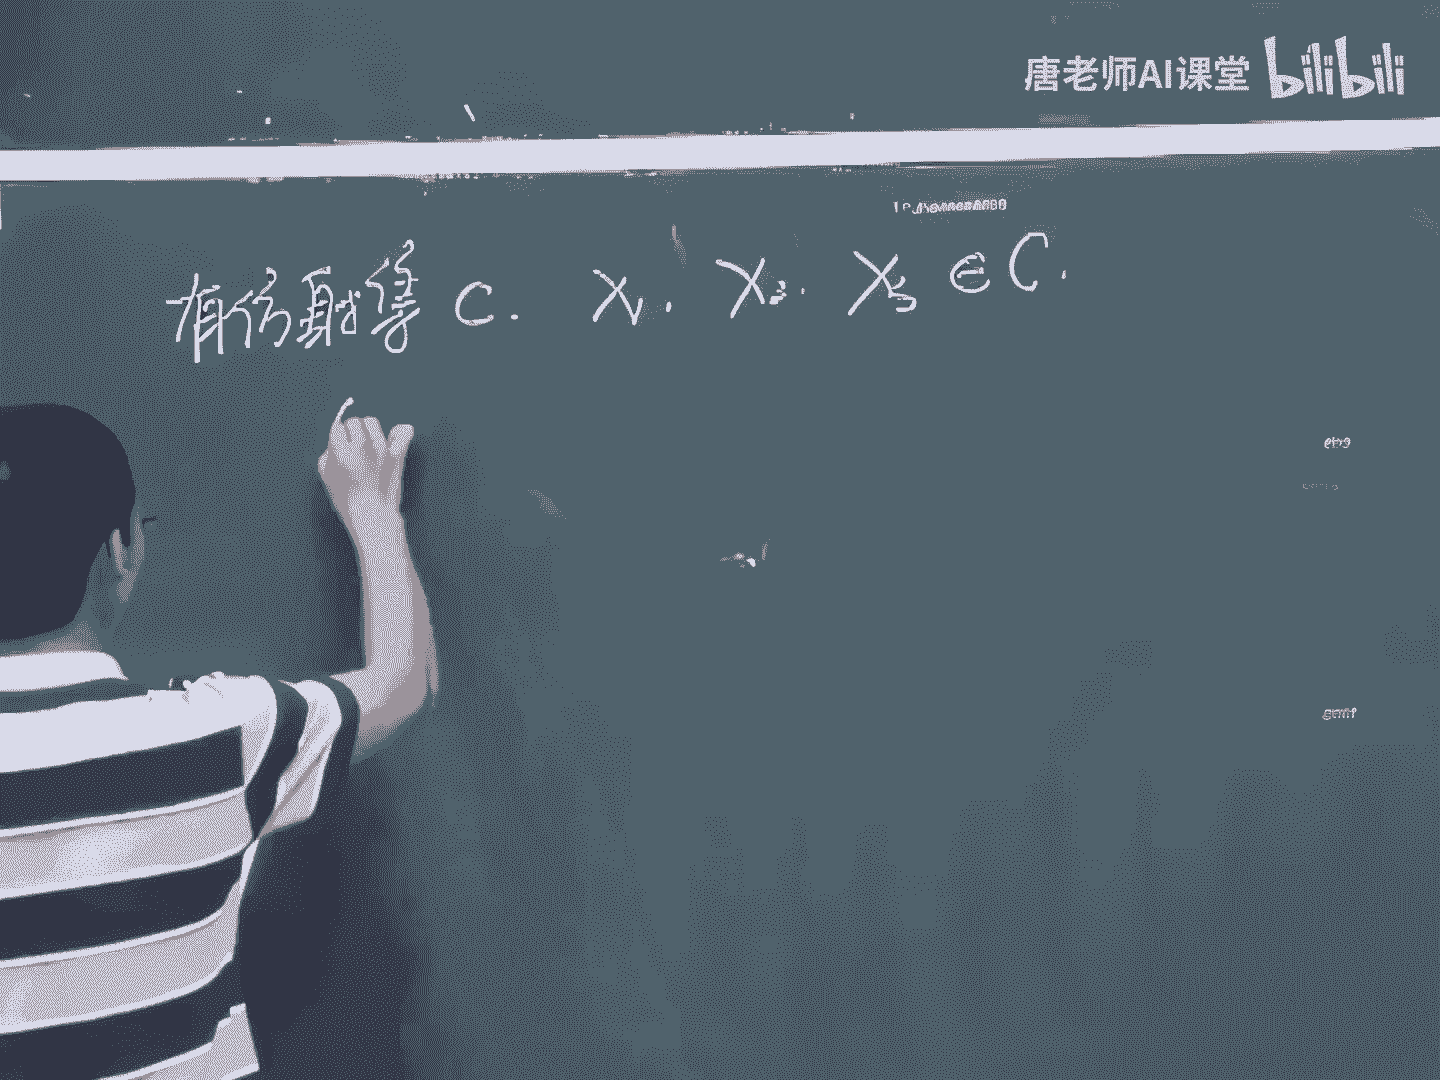 唐老师AI课堂 bilibili
有仿射集 C. X₁. X₂. X₃ ∈ C.